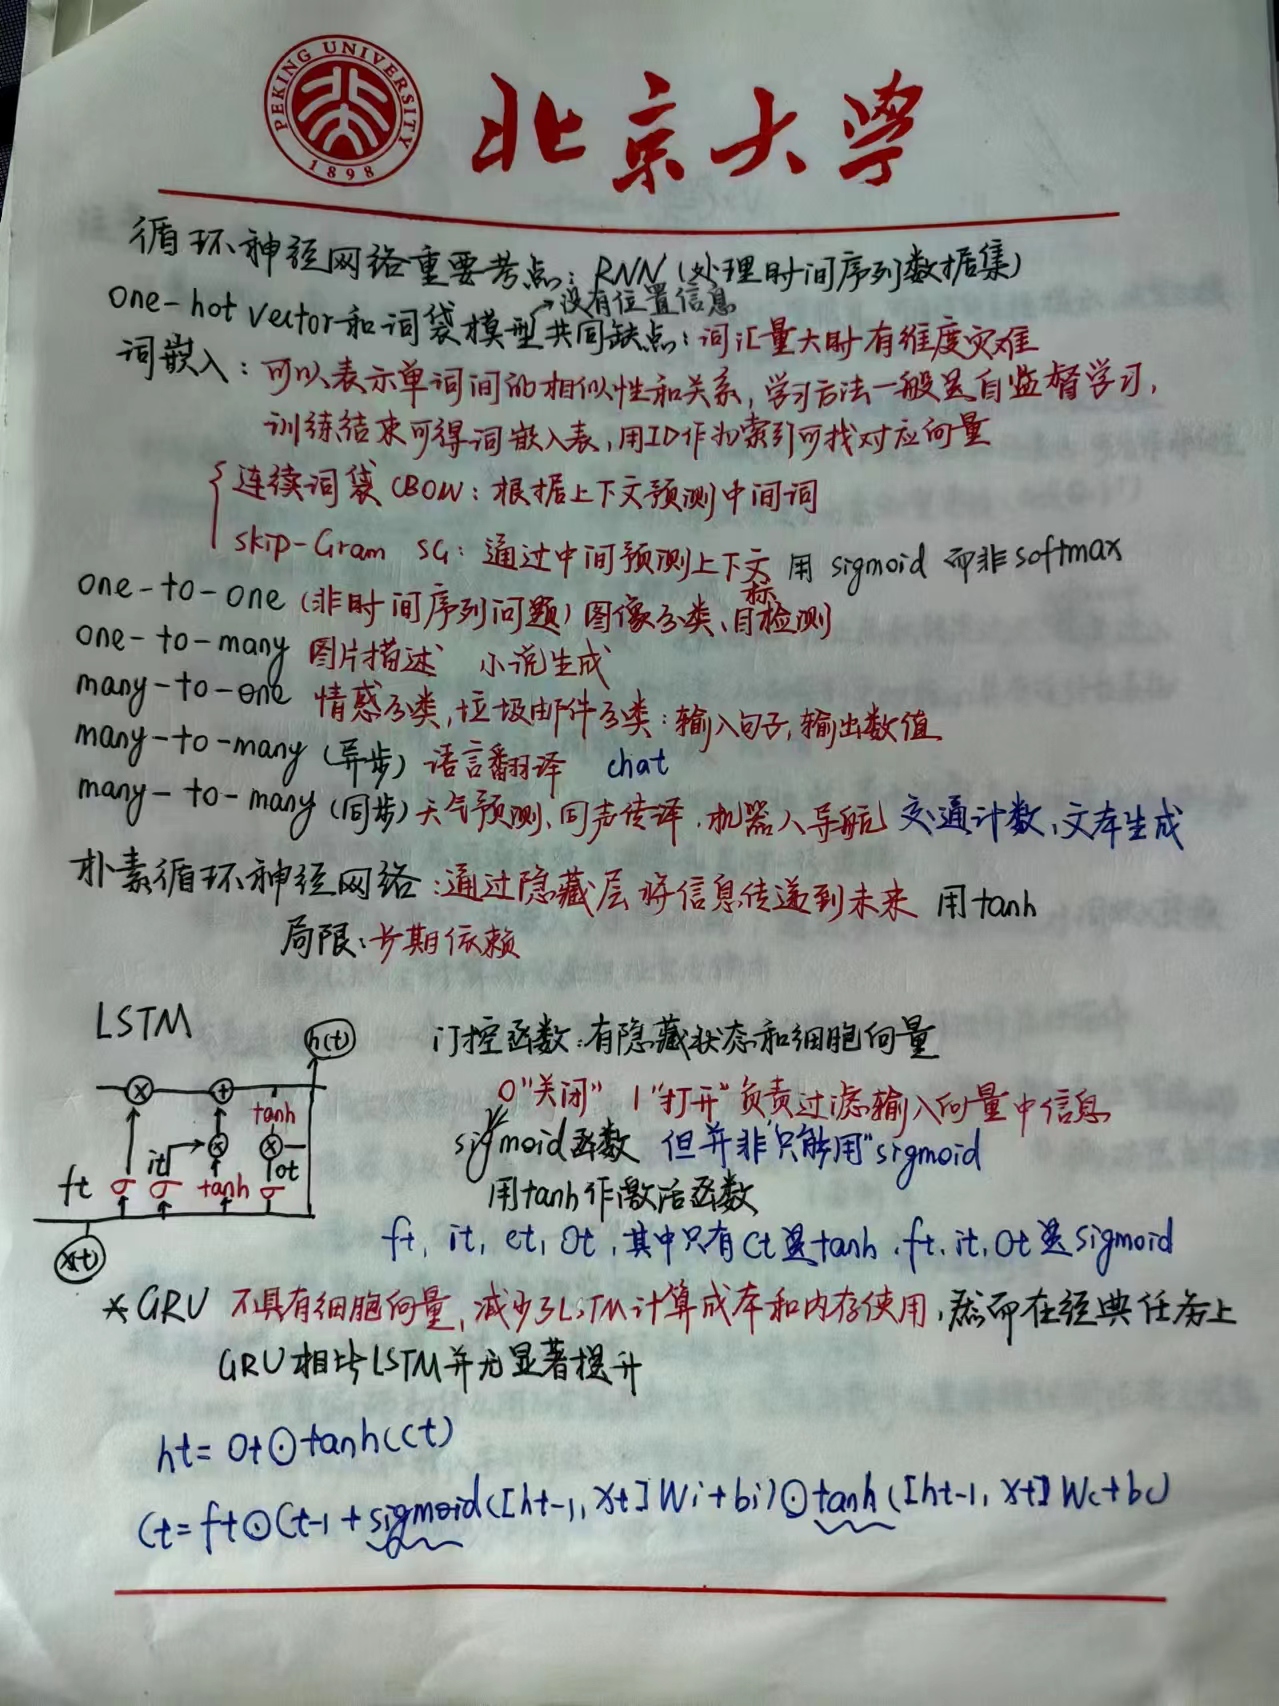 PEKING UNIVERSITY
1898
北京大学
循环神经网络重要考点：RNN（处理时间序列数据集）
→没有位置信息
one-hot vector和词袋模型共同缺点：词汇量大时有维度灾难
词嵌入：可以表示单词间的相似性和关系，学习方法一般是自监督学习，
训练结束可得词嵌入表，用ID作为索引可找对应向量
连续词袋 CBOW：根据上下文预测中间词
skip-Gram SG：通过中间预测上下文 用 sigmoid 而非softmax
one-to-one（非时间序列问题）图像分类、目标检测
one-to-many 图片描述 小说生成
many-to-one 情感分类，垃圾邮件分类：输入句子，输出数值
many-to-many（异步）语言翻译 chat
many-to-many（同步）天气预测、同声传译、机器人导航 交通计数、文本生成
朴素循环神经网络：通过隐藏层将信息传递到未来 用tanh
局限：长期依赖
LSTM
h(t)
门控函数：有隐藏状态和细胞向量
× +
tanh
0"关闭" 1"打开" 负责过滤输入向量中信息
it × × ot
sigmoid函数 但并非"只能用"sigmoid
ft σ σ tanh σ
用tanh作激活函数
ft, it, ct, ot，其中只有ct是tanh，ft, it, ot是sigmoid
x(t)
*GRU 不具有细胞向量，减少了LSTM计算成本和内存使用，然而在经典任务上
GRU相比LSTM并无显著提升
ht=ot⊙tanh(ct)
Ct=ft⊙Ct-1+sigmoid([ht-1, xt]Wi+bi)⊙tanh([ht-1, xt]Wc+bc)